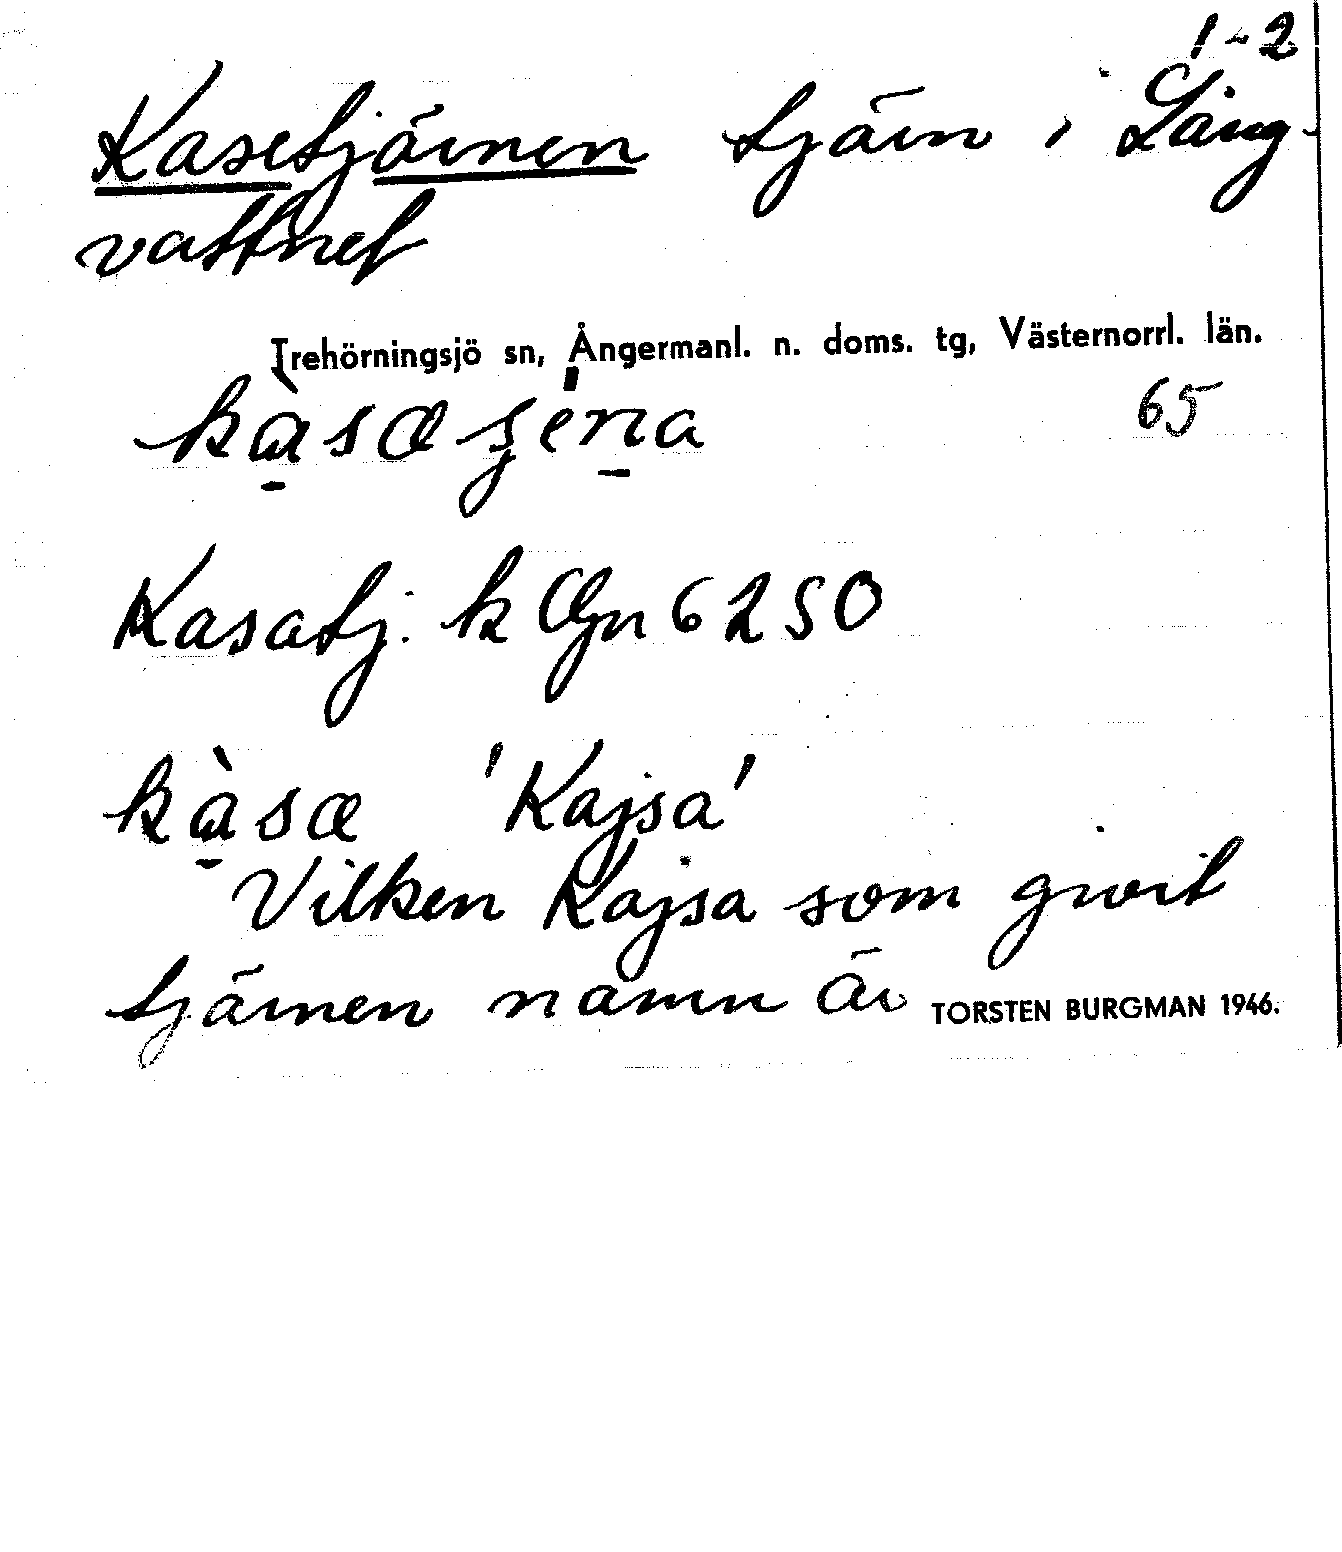 1-2
Kasetjärnen tjärn i Lång-
vattnet
Trehörningsjö sn, Ångermanl. n. doms. tg, Västernorrl. län.
65
Kasatj. k Ögn 6250
kàsæ 'Kajsa'
Vilken Kajsa som givit
tjärnen namn är
TORSTEN BURGMAN 1946.